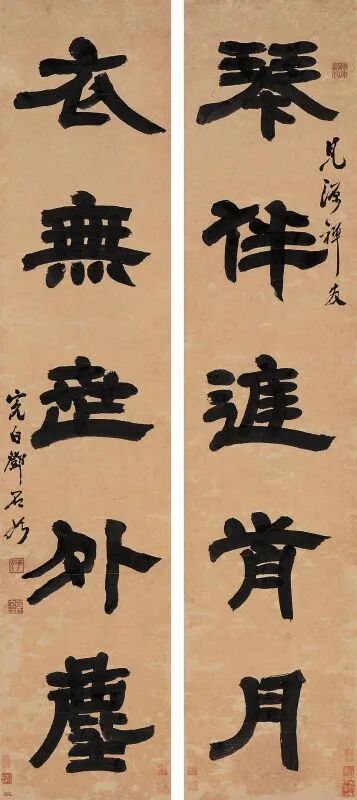 琴伴庭前月
見禪友
衣無世外塵
完白鄧石如